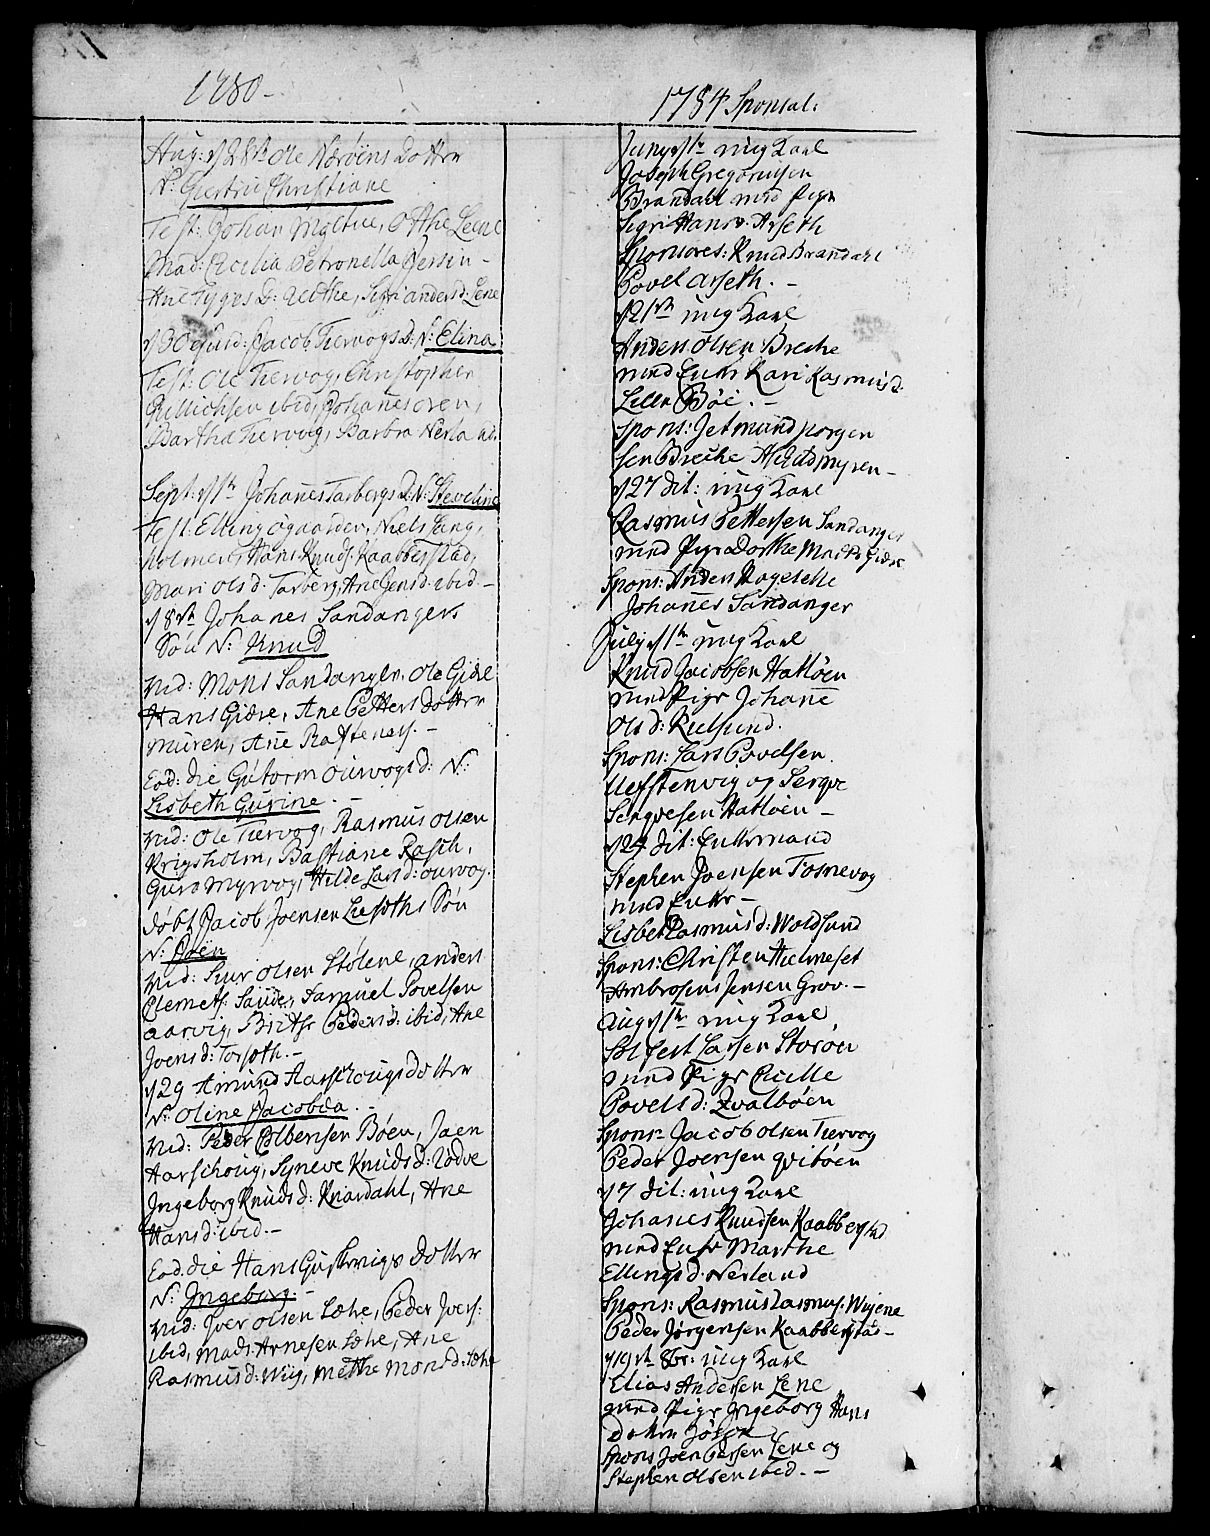 1780-
Aug: d/28de Ole Nørøens Dotter
N: Giertrú Christiane
Test: Johan Moltúe, Othe Leene
Mad: Cicilia Petronella Jersin-
Ane Tyges D: Anders d: Lene
d/30 Jacob Tiervogs D: N: Elina
Test: Ole Tiervog, Christopher
ibid, Johanes
Bartha Tiervog, Barbra
Sept: d/1te Johanes Tarbergs D: N: Steveline
Test: Elling Niels Lang,
holmen, Hans Knuds: Kaabberstad,
Mari Ols d: Tarberg, Ane Jens d: ibid.-
d/8de Johanes Sandangers
Søn N: Knud
vid: Mons Sandanger, Ole Gidse
Hans Gidse, Ane Petters Dotter
Múren, Ane
Eod: die Gútorm oúrvogs d: N:
Lisbeth Gúrine.-
vid: Ole Tiervog, Rasmus Olsen
Krigsholm, Bastiane Rasch,
Guro Myrvog, Hilde Lars d: oúrvog.
døbt Jacob Joensen Søn
N: Joen
vid: Siur Olsen Stølene, anders
Clemets: Sande, Samúel Povelsen
aarvig, Peders d: ibid, Ane
Joens d: Torseth.-
d/29 Amúnd Aarschougs Dotter
N: Oline Jacobæa.
vid: Peder Colbensen Bøen, Joen
Aarschoúg, Syneve Knúds d: Vodve
Ingeborg Knúds d: Knardahl, Ane
Hans d: ibid.-
Eod. die Hans Gúrskevigs Dotter
N: Ingeborg.-
vid: Iver Olsen Læhe, Peder Ivers:
ibid, Mads Arnesen Læhe, Ane
Rasmus d: Wiig, Methe Mons d: Læhe
1784 Sponsal:
Juny d/1te ung Karl
Joseph Gregoriusen
Brandahl med Pige
Sigri Hans d: Arseth
Sponsores: Knud Brandahl
Povel Arseth.-
d/21de ung Karl
Anders Olsen Breche
med Enke Kari Rasmus d:
Lille Bøe.-
Spons: Jetmúnd Jørgen
sen Breche Myren-
d/27 dit: ung Karl
Rasmus Pettersen Sandanger
med Pige Dorthe Mads d: Gidse
Spons: Anders Hageselle
Johanes Sandanger
July d/1te ung Karl
Knud Jacobsen Hatløen
med Pige Johanne
Ols d:
Spons: Lars Povelsen
og Serqve
Serqvesen Hatløen-
d/24 dit: Enkemand
Stephen Joensen Tosnevog
med Enke-
Lisbet Rasmus d: Woldsund
Spons: Christen
Ambrosius Jensen Grov.-
Aug d/1te ung Karl
Solfest Larsen Storøen
med Pige Cicille
Povels d: Qvalbøen
Spons- Jacob Olsen Tiervog
Peder Joensen qvibøen
d/7 dit: ung Karl
Johanes Knudsen Kaabberstad
med Enke Marthe
Ellings d: Nerland
Spons: Rasmus Rasmus:
Peder Jørgensen Kaabberstad-
d/19de 8br: ung Karl
Elias Andersen Lene
med Pige Ingeborg Hans
dotter
Spons Joen Persen Lene og
Stephen Olsen ibid.-